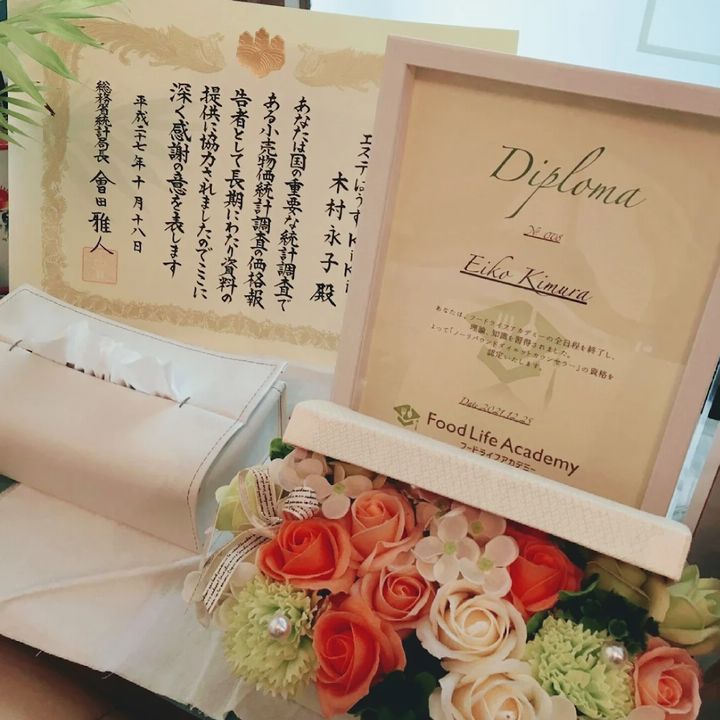 エステはうす KiKi
木村永子殿
あなたは国の重要な統計調査で
ある小売物価統計調査の価格報
告者として長期にわたり資料の
提供に協力されましたのでここに
深く感謝の意を表します
平成二十七年十月十八日
総務省統計局長 會田雅人
Diploma
№ 008
Eiko Kimura
あなたは、フードライフアカデミーの全日程を終了し、
理論、知識を習得されました。
よって「ノーリバウンドダイエットカウンセラー」の資格を
認定いたします。
Date 2021.12.25
Food Life Academy
フードライフアカデミー